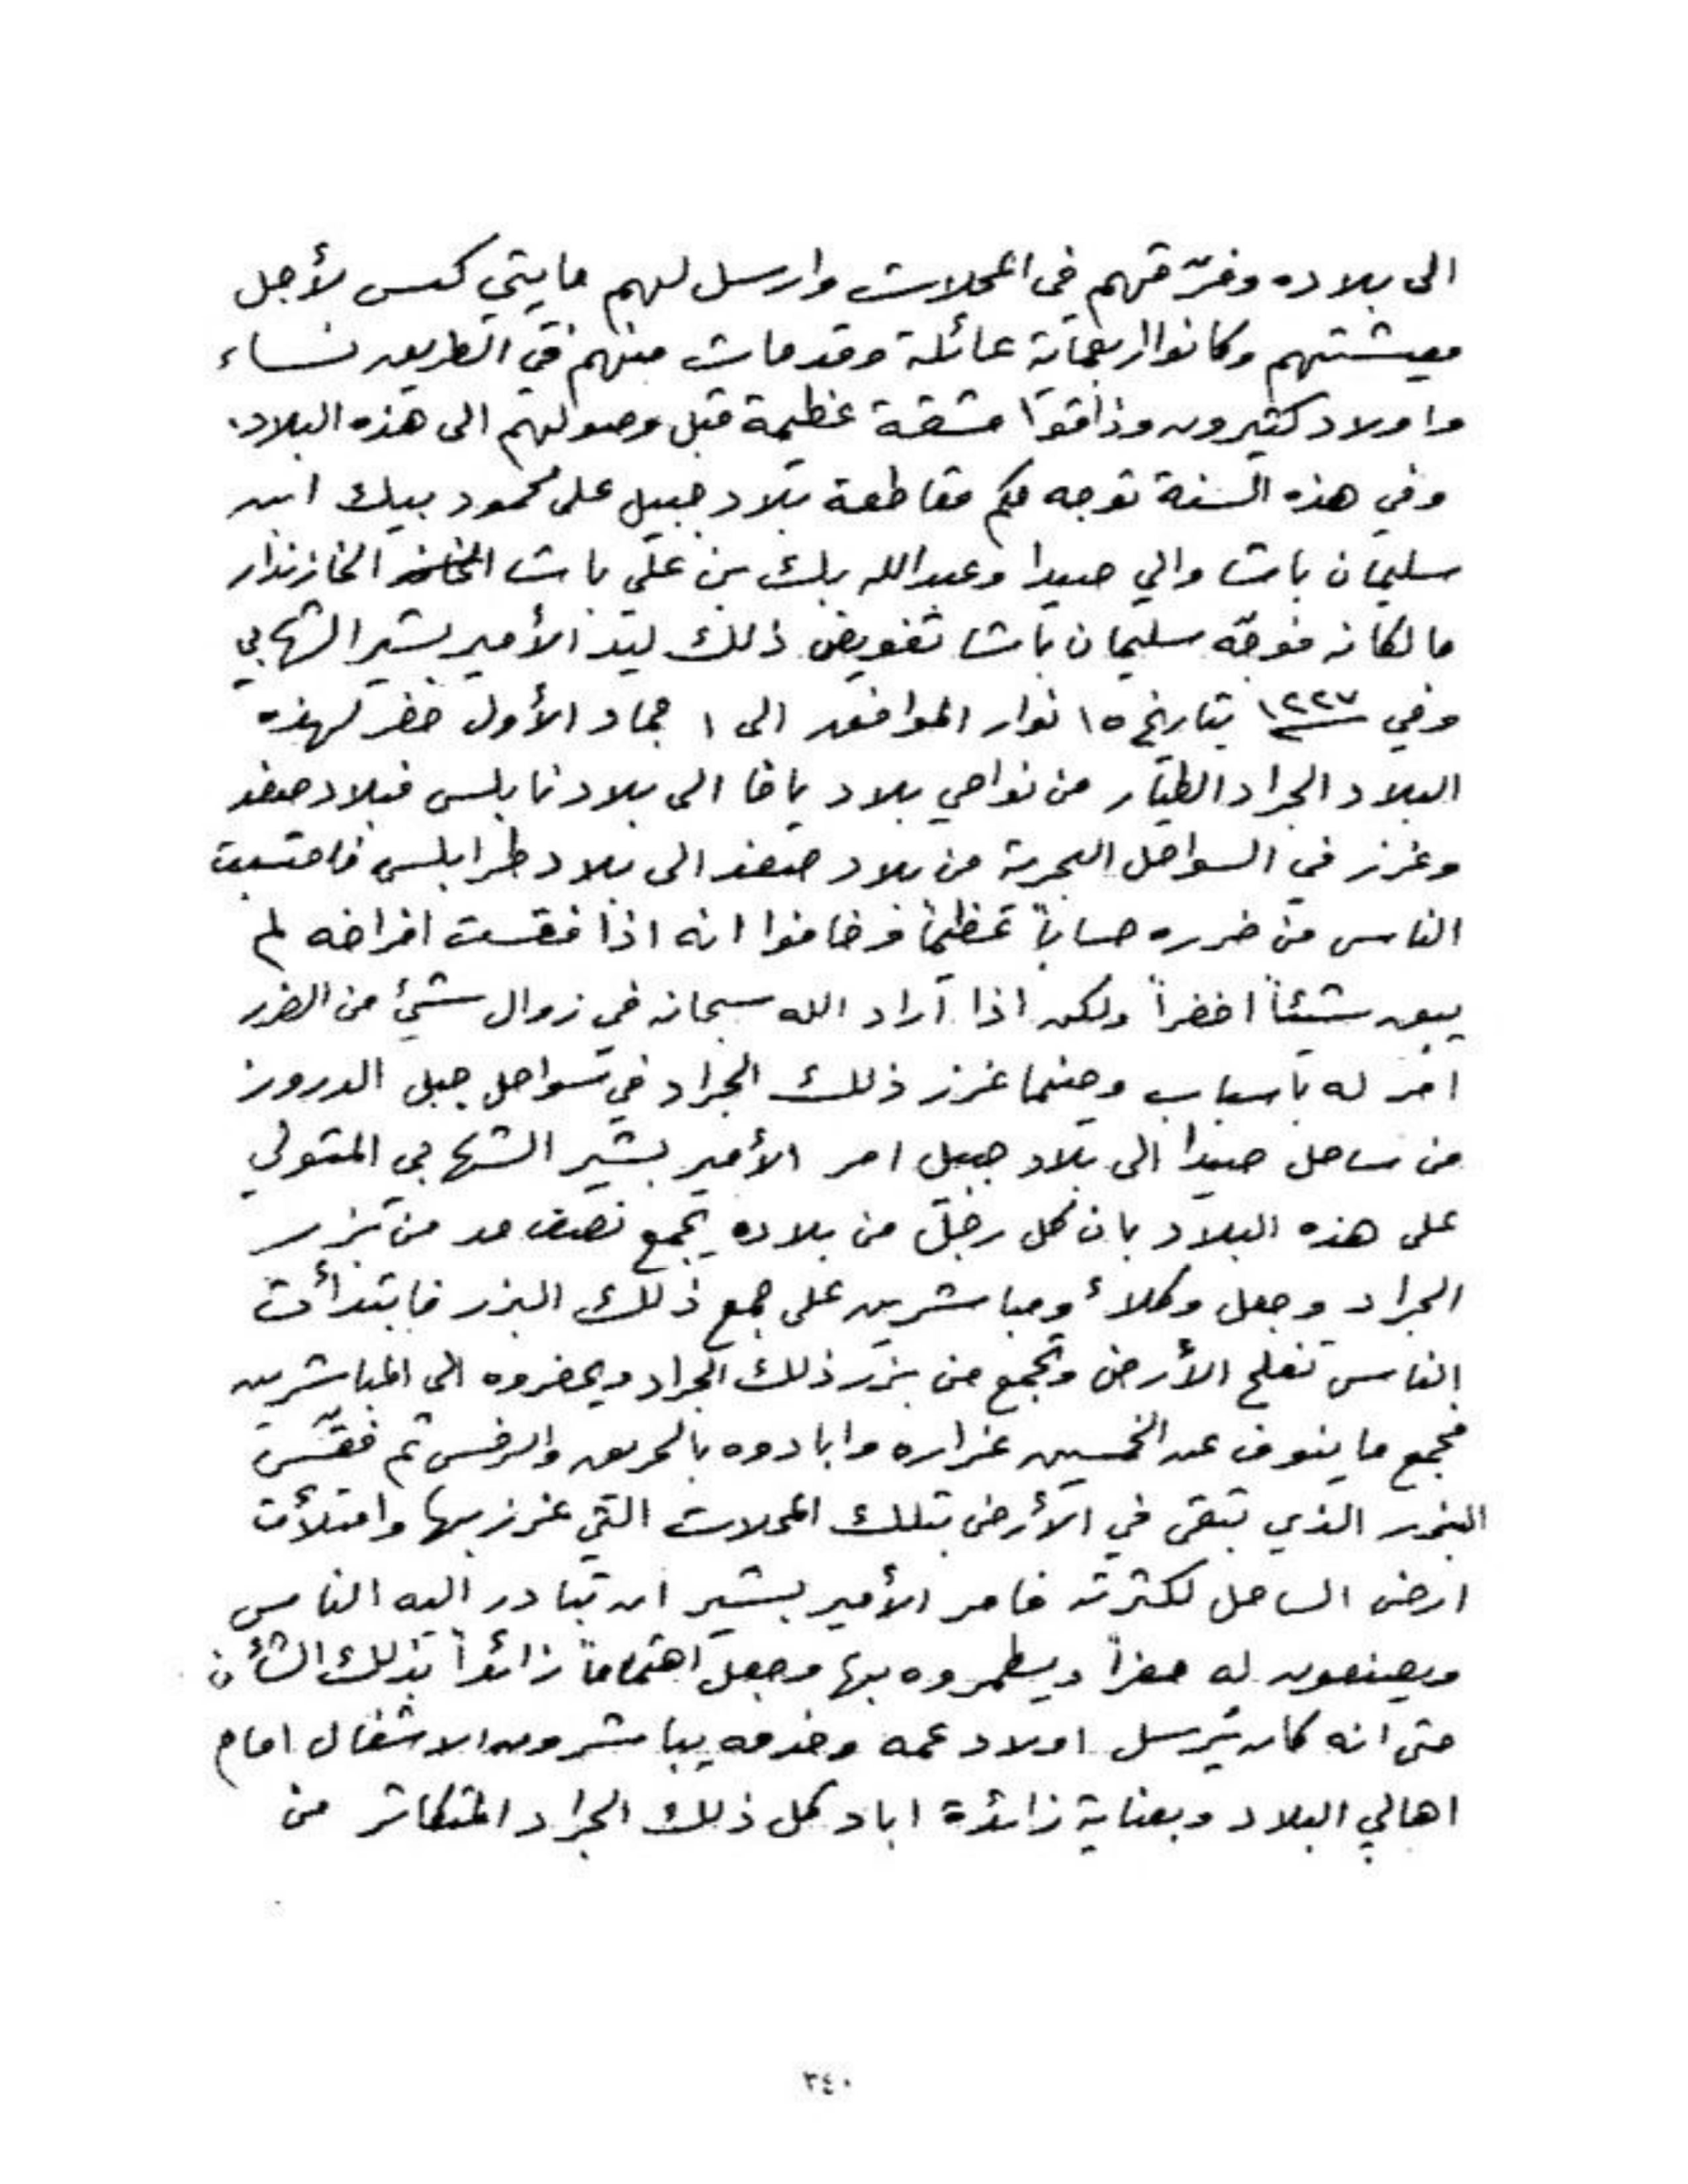 الى بلاده وفرّقهم في المحلات وارسل لهم مايتي كيس لأجل
معيشتهم وكانوا اربعماية عائلة وقد مات منهم في الطريق نساء
واولاد كثيرون وذاقوا مشقة عظيمة قبل وصولهم الى هذه البلاد.
وفي هذه السنة توجه حكم مقاطعة بلاد جبيل على محمود بيك ابن
سليمان باشا والي صيدا وعبدالله بك بن علي باشا الخازندار
مالكانه فوجّه سليمان باشا تفويض ذلك ليد الأمير بشير الشهابي
وفي سنة ١٢٢٧ بتاريخ ١٥ نوار الموافق الى ١ جماد الأول حضر لهذه
البلاد الجراد الطيّار من نواحي بلاد يافا الى بلاد نابلس فبلاد صفد
وغرز في السواحل البحرية من بلاد صفد الى بلاد طرابلس فاحتسبت
الناس من ضرره حساباً عظيماً وخافوا انه اذا فقست افراخه لم
يبق شيئاً اخضراً ولكن اذا اراد الله سبحانه في زوال شيئ من الضرر
امر له باسباب وحينما غرز ذلك الجراد في سواحل جبل الدروز
من ساحل صيدا الى بلاد جبيل امر الأمير بشير الشهابي المتولي
على هذه البلاد بان كل رجل من بلاده يجمع نصف مد من بزر
الجراد وجعل وكلاء ومباشرين على جمع ذلك البزر فابتدأت
الناس تفلح الأرض وتجمع من بزر ذلك الجراد ويحضروه الى المباشرين
فجمع ما ينوف عن الخمسين غراره وابادوه بالحريق والرفس ثم فقّس
البزر الذي تبقى في الأرض بتلك المحلات التي غرز بها وامتلأت
ارض الساحل لكثرته فامر الأمير بشير ان تبادر اليه الناس
ويصنعون له حفراً ويطمروه بها وجعل اهتماماً زائداً بذلك الشأن
حتى انه كان يرسل اولاد عمه وخدمه يباشرون الاشغال امام
اهالي البلاد وبعناية زائدة اباد كل ذلك الجراد المتكاثر من
٣٤٠